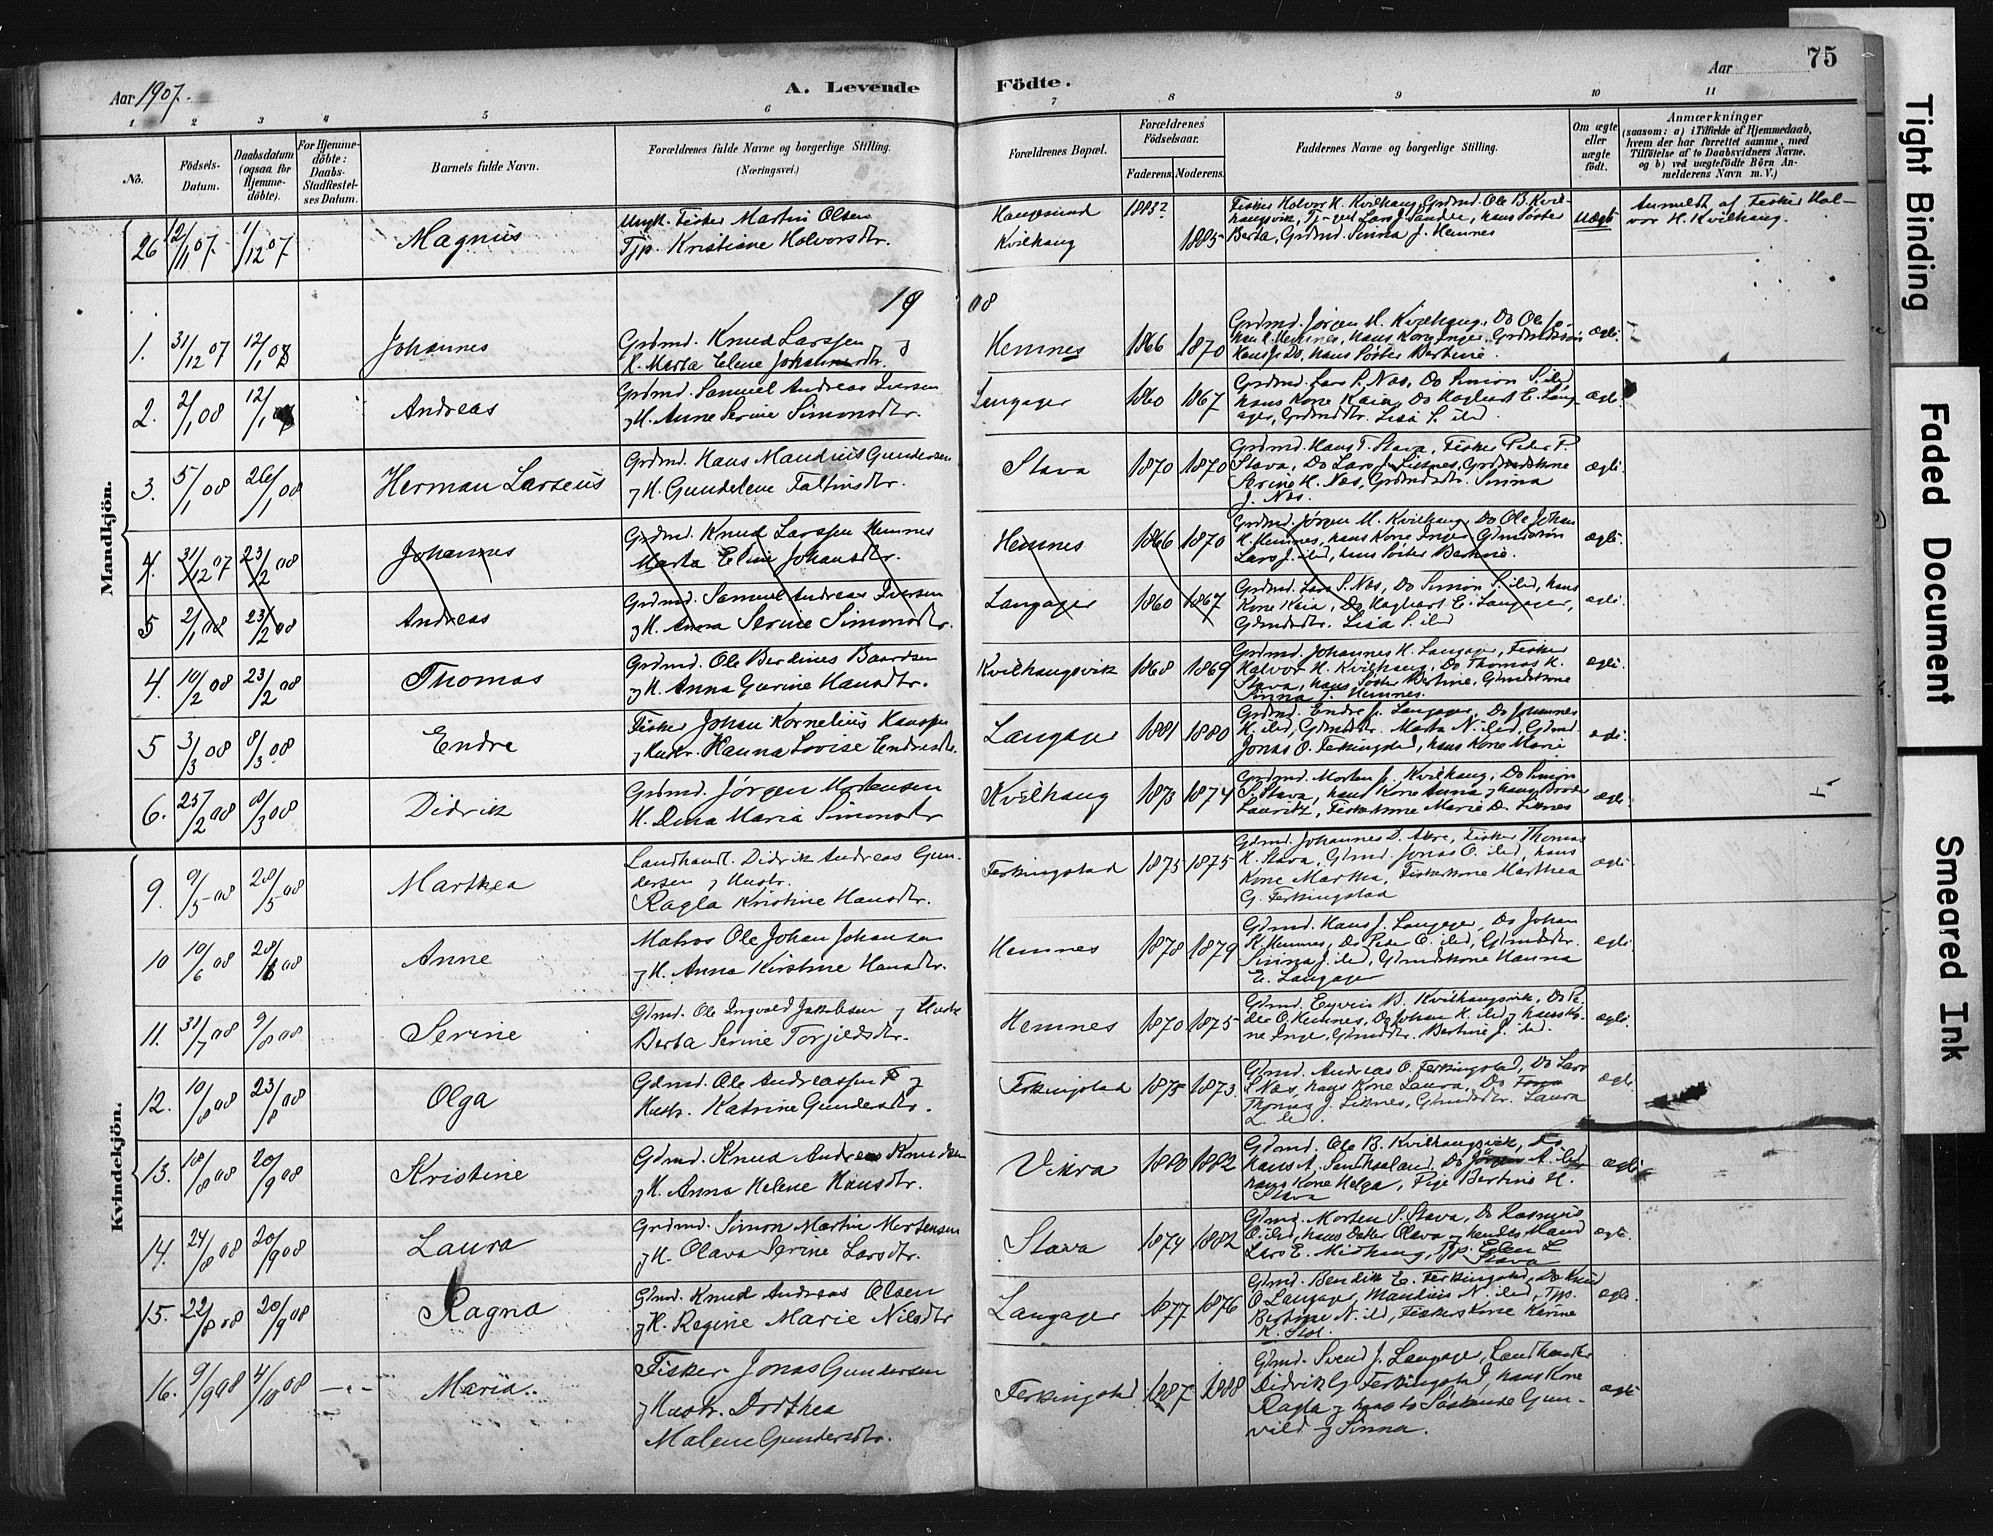 75
Aar 1907.
A. Levende Födte.
Aar
1 2 3 4 5 6 7 8 9 10 11
No.
Födsels-Datum.
Daabsdatum (ogsaa for Hjemmedöbte).
For Hjemmedöbte: Daabs-Stadfestelses Datum.
Barnets fulde Navn.
Forældrenes fulde Navne og borgerlige Stilling. (Næringsvei.)
Forældrenes Bopæl.
Forældrenes Födselsaar.
Faderens. Moderens.
Faddernes Navne og borgerlige Stilling.
Om ægte eller uægte födt.
Anmærkninger
(saasom: a) i Tilfælde af Hjemmedaab, hvem der har forrettet samme, med Tilföielse af to Daabsvidners Navne, og b) ved uægtefödte Börn Anmelderens Navn m. V.)
Mandkjön.
26 2/11 07. 1/12 07 Magnus
Ungk. Fisker Martin Olsen
Tjp. Kristiane Halvorsdtr.
Kvilhaug
1883? 1885
Fisker Halvor H. Kvilhaug, Grdmd. Ole B. Kvil-
haugsvik,
Berta, Grdmd. Sinna J. Hemnes
uægte
Anmeldt af Fisker Hal-
vor H. Kvilhaug.
1908
1. 31/12 07 12/1 08 Johannes
Grdmd. Knud Larssen
H. Marta Elene Johannesdtr.
Hemnes 1866 1870
Grdmd. Jørgen M. Kvilhaug, Do Ole Jo-
han K. Hemnes, hans Kone Inger, Grdmdssøn
Hans J. Do, hans Søster Bertine.
ægte.
2. 2/1 08 12/1 Andreas
Grdmd. Samuel Andreas Iversen
H. Anne Serine Simonsdtr.
Langager 1860 1867
Grdmd. Lars S. Nes, Do Simon S. ibd
hans Kone Kaia, Do Hagbart E. Lang-
ager, Grdmdsdtr. Lisa S. ibd.
ægte.
3. 5/1 08 26/1 08 Herman Larseus
Grdmd. Hans Mandius Gundersen
H. Gundelene Faltinsdtr.
Stava 1870 1870
Grdmd. Hans T. Stava, Fisker Peter P.
Stava, Do Lars J. Liknes, Grdmdskone
Serine H. Nes, Grdmdsdtr. Sinna
J. Nes.
ægte.
4. 31/12 07 23/2 08 Johannes
Grdmd. Knud Larssen Hemnes
Marta Eline Johansdtr.
Hemnes 1866 1870
Grdmd. Jørgen M. Kvilhaug, Do Ole Johan
K. Hemnes, hans Kone Inger, Gdmdssøn
Lars J. ibd, hans Søster Bertine.
ægte.
5 2/1 08 23/2 08 Andreas
Grdmd. Samuel Andreas Iversen
H. Anna Serine Simonsdtr.
Langager 1860 1867
Grdmd. Lars S. Nes, Do Simon S. ibd, hans
Kone Kaia, Do Hagbart E. Langager,
Gdmdsdtr. Lisa S. ibd
ægte.
4. 10/2 08 23/2 08 Thomas
Grdmd. Ole Berdines Baardsen
H. Anna Gurine Hansdtr.
Kvilhaugsvik 1868 1869
Grdmd. Johannes H. Langager, Fisker
Halvor H. Kvilhaug, Do Thomas H.
Stava, hans Søster Bertine, Gdmdskone
Sinna J. Hemnes.
ægte.
5 3/3 08 8/3 08 Endre
Fisker Johan Kornelius Hanssen
Hustr. Hanna Lovise Endresdtr.
Langager 1881 1880
Grdmd. Endre J. Langager, Do Johannes
H. ibd, Gdmdsdtr. Marta N. ibd, Gdmd.
Jonas O. Ferkingstad, hans Kone Marie
ægte.
6. 25/2 08 8/3 08 Didrik
Grdmd. Jørgen Mortensen
H. Dina Maria Simonsdtr
Kvilhaug 1873 1874
Grdmd. Morten J. Kvilhaug, Do Simon
S. Stava, hans Kone Anna, hans Broder
Lauritz, Fiskerkone Marie D. Liknes
ægte
Kvindekjön.
9. 9/5 08 28/5 08 Marthea
Landhandl. Didrik Andreas Gun-
dersen Hustr.
Ragla Kristine Hansdtr.
Ferkingstad 1875 1875
Gdmd. Johannes D. Akre, Fisker Thomas
H. Stava, Gdmd. Jonas O. ibd, hans
Kone Martha, Fiskerkone Marthea
G. Ferkingstad
ægte.
10 10/6 08 28/6 08 Anne
Matros Ole Johan Johansen
H. Anna Kirstine Hansdtr.
Hemnes 1878 1879
Gdmd. Hans J. Langager, Do Johan
K. Hemnes, Do Peter O. ibd, Gdmdsdtr.
Sinna J. ibd, Gdmdskone Hanna
E. Langager
ægte.
11. 31/7 08 9/8 08 Serine
Gdmd. Ole Ingvald Jakobsen Hustr
Berta Serine Torjildsdtr.
Hemnes 1870 1875
Gdmd. Eyvin B. Kvilhaugsvik, Do Pe-
der O. Hemnes, Do Johan K. ibd hans Ko-
ne Inge, Gdmdsdtr. Bertine J. ibd.
ægte.
12. 10/8 08 23/8 08 Olga
Gdmd. Ole Andreassen
Hustr. Katrine Gundersdtr.
Ferkingstad 1875 1873.
Gdmd. Andreas O. Ferkingstad, Do Lars
S. Nes, hans Kone Laura, Do
Thomas J. Liknes, Gdmdsdtr. Laura
L. ibd.
ægte.
13. 18/8 08 20/9 08 Kristine
Gdmd. Knud Andreas Knudsen
H. Anna Helene Hansdtr.
Vikra 1880 1882
Gdmd. Ole B. Kvilhaugsvik, Do
Hans A. Sandhaaland, Do A. ibd
hans Kone Helga, Pige Bertine H.
Stava
ægte
14. 24/8 08 20/9 08 Laura
Grdmd. Simon Martin Mortensen
H. Olava Serine Larsdtr.
Stava 1874 1882
Gdmd. Morten S. Stava, Do Rasmus
O. ibd, hans Datter Olava hendes Mand
Lars E. Midhaug, Tjp. Elen L.
Stava
ægte.
15. 22/8 08 20/9 08 Ragna
Gdmd. Knud Andreas Olsen
H. Regine Marie Nilsdtr
Langager 1877 1876
Gdmd. Bendik E. Ferkingstad, Do Knud
O. Langager, Mandius N. ibd, Tjp.
Bertine N. ibd, Fiskerkone Karine
K. Stol.
ægte.
16. 9/9 08 4/10 08 Maria.
Fisker Jonas Gundersen
Hustr. Dorthea
Malene Gundersdtr.
Ferkingstad 1887 1888
Gdmd. Svend J. Langager, Landhandler
Didrik G. Ferkingstad, hans Kone
Ragla hans to Søskende Gun-
vild Sinna.
ægte
Tight Binding
Faded Document
Smeared Ink